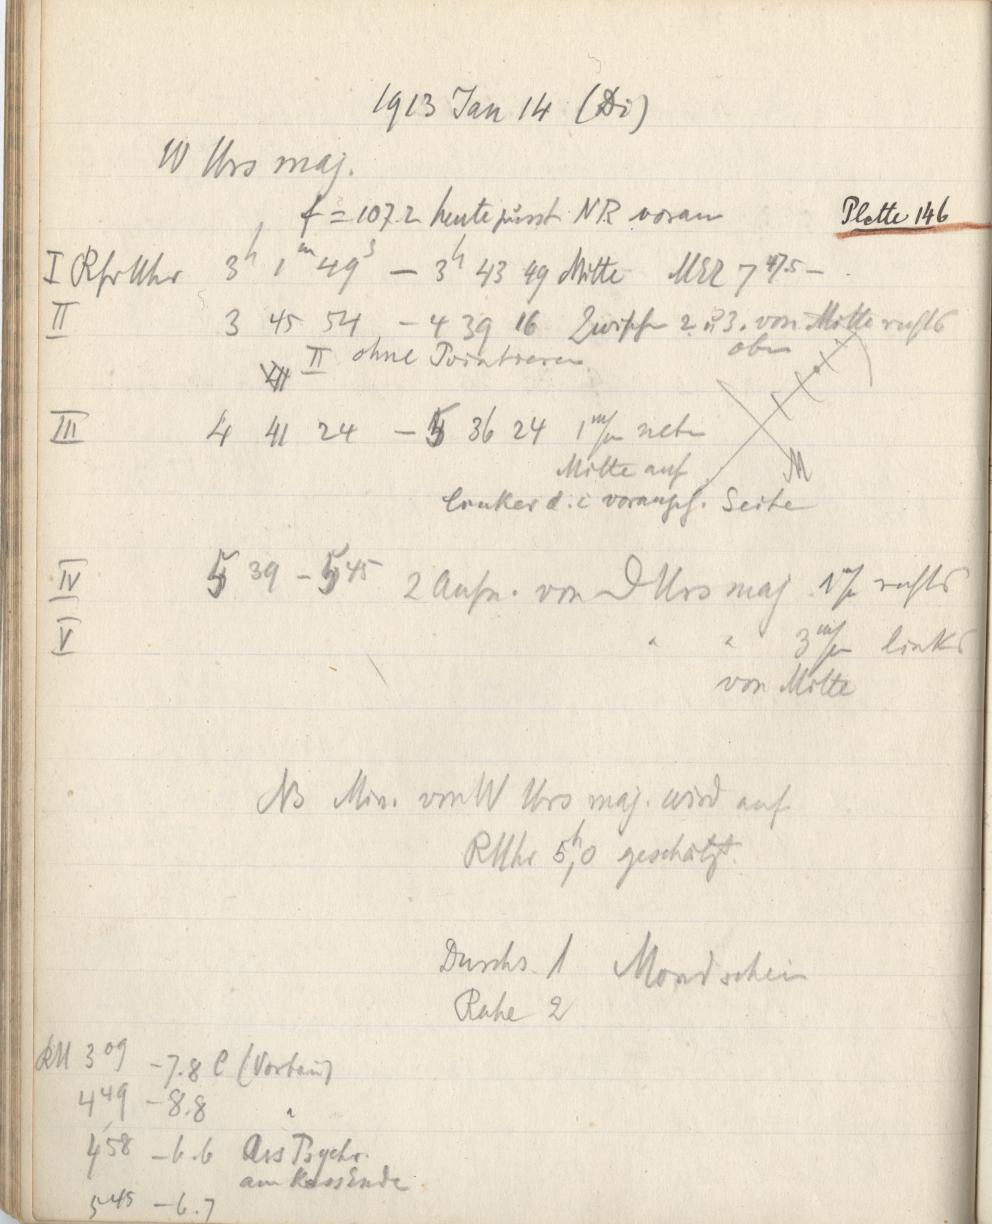 1913 Jan 14 (Di)
W Urs maj.
f = 107.2 heute NR voran
Plette 146
I Rfr Uhr 3h 1m 49s – 3h 43 49 Mitte MEZ 7 47.5 –
II 3 45 54 – 4 39 16 Zwischen 2. u 3. von Mitte rechts
oben
II ohne Pointieren
III 4 41 24 – 5 36 24 1 m/m neben
Mitte auf
M
linker d. i vorangeh. Seite
IV 5 39 – 5 45 2 Aufn. von Urs maj 1 m/m rechts
V " " 3 m/m links
von Mitte
NB Min. von W Urs maj. wird auf
RUhr 5h,0 geschätzt.
Durchs. 1 Mondschein
Ruhe 2
RU 3 09 –7.8 C (Vorbau)
4 49 –8.8 "
4 58 –6.6 Ass Psychr.
am Kass Ende
5 45 –6.7